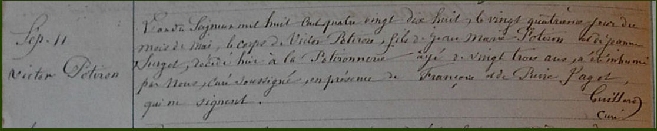 Sép. 11
Victor Pétiron
L'an du Seigneur mil huit cent quatre vingt dix huit, le vingt quatrième jour du
mois de mai, le corps de Victor Pétiron, fils de Jean Marie Pétiron et de Jeanne
Surget, décédé hier à la Pétironnerie âgé de vingt trois ans, a été inhumé
par Nous, curé soussigné en présence de François et de Pierre Pageot,
qui ne signent.
Curé